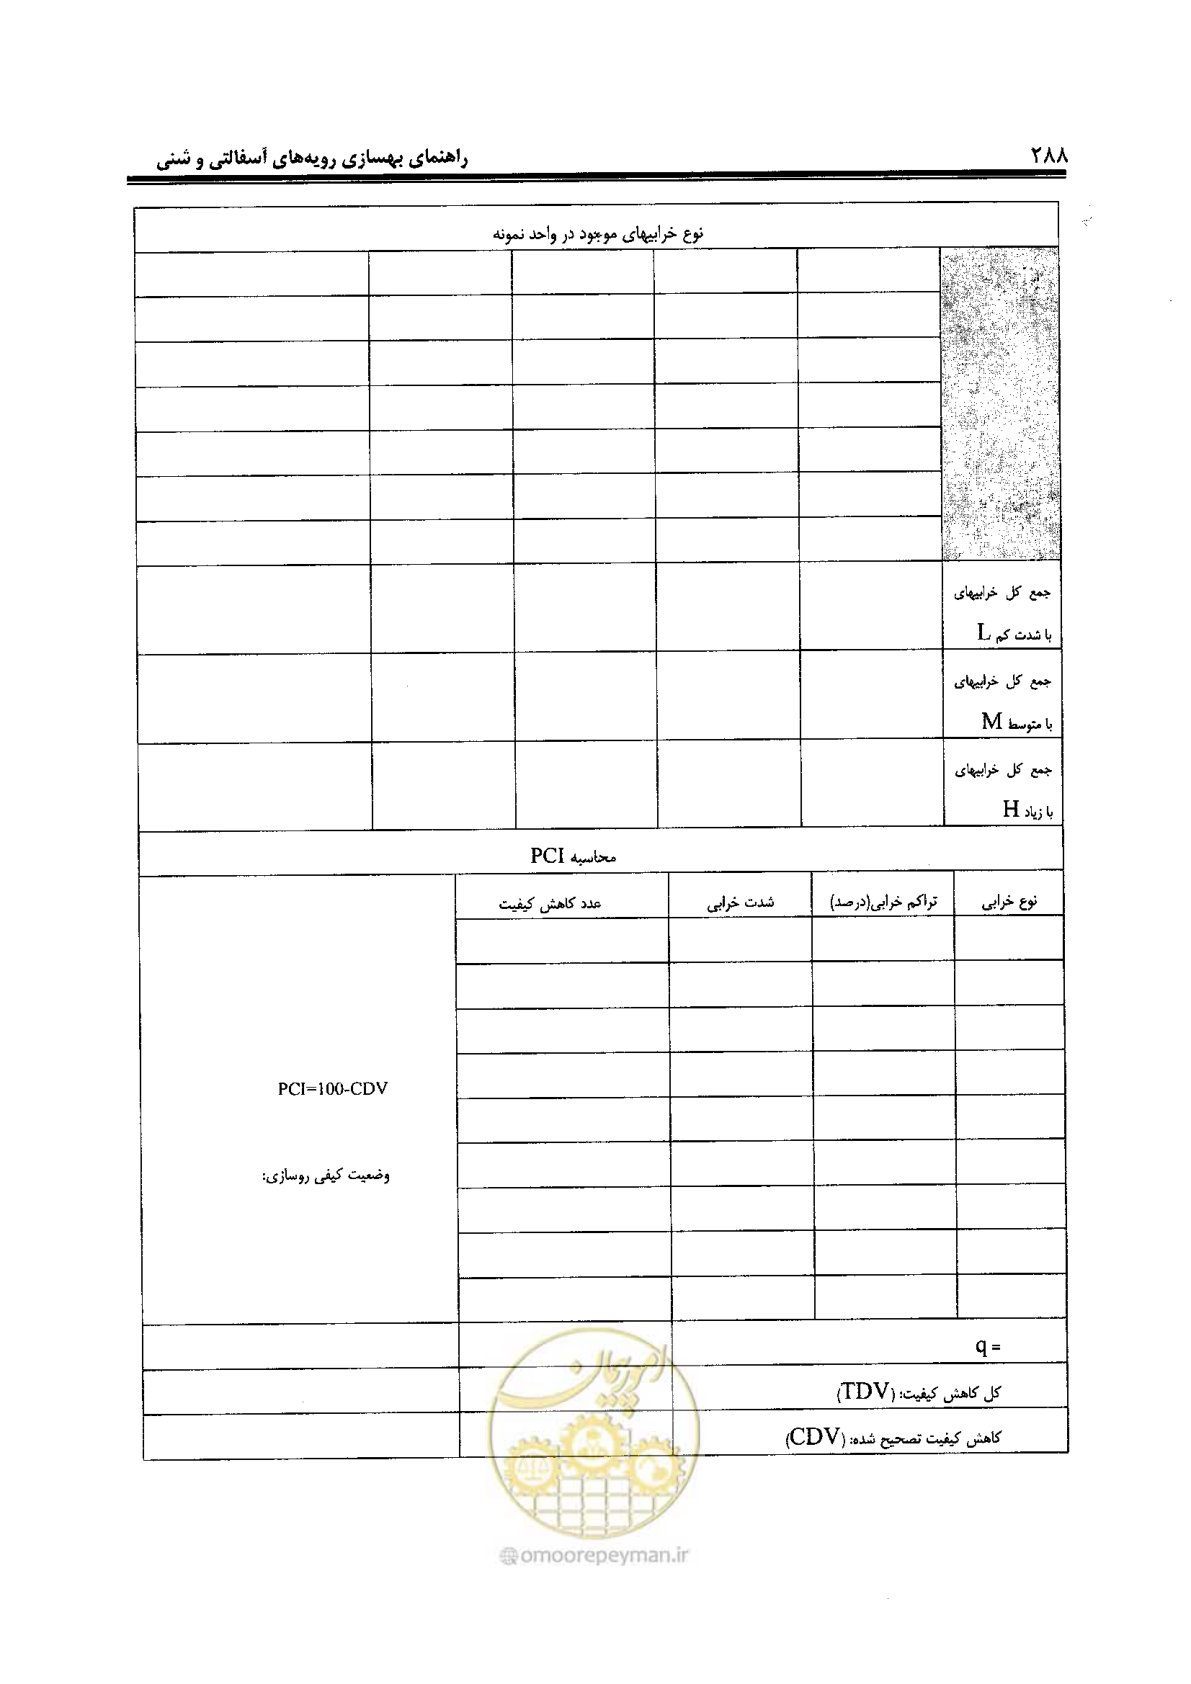 ۲۸۸
راهنمای بهسازی رویه‌های آسفالتی و شنی
نوع خرابیهای موجود در واحد نمونه
جمع کل خرابیهای
با شدت کم L
جمع کل خرابیهای
با متوسط M
جمع کل خرابیهای
با زیاد H
محاسبه PCI
نوع خرابی
تراکم خرابی(درصد)
شدت خرابی
عدد کاهش کیفیت
PCI=100-CDV
وضعیت کیفی روسازی:
q =
کل کاهش کیفیت: (TDV)
کاهش کیفیت تصحیح شده: (CDV)
امور پیمان
@omoorepeyman.ir